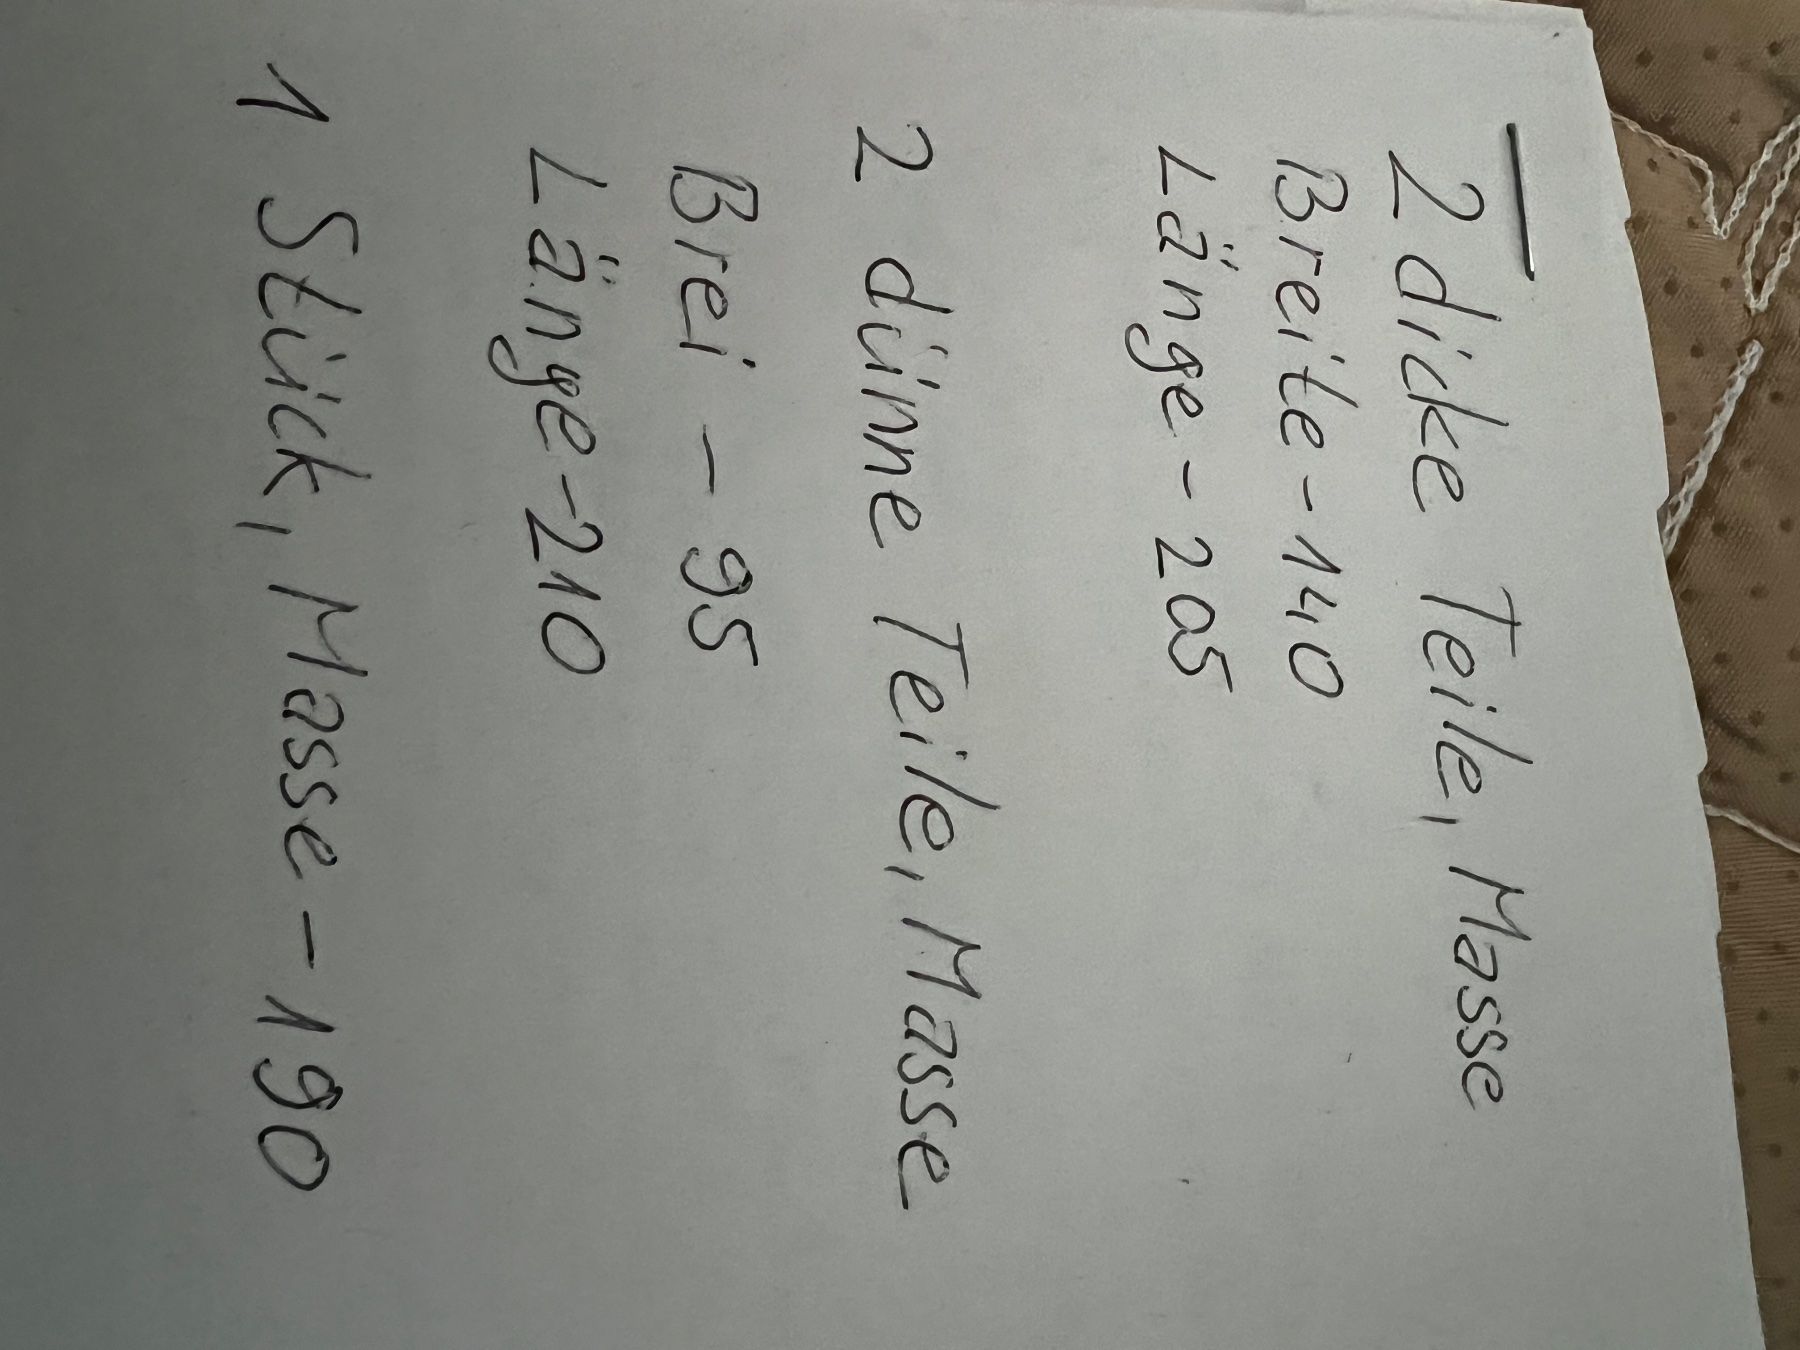 2 dicke Teile, Masse
Breite - 140
Länge - 205
2 dünne Teile, Masse
Brei - 95
Länge - 210
1 Stück, Masse - 190